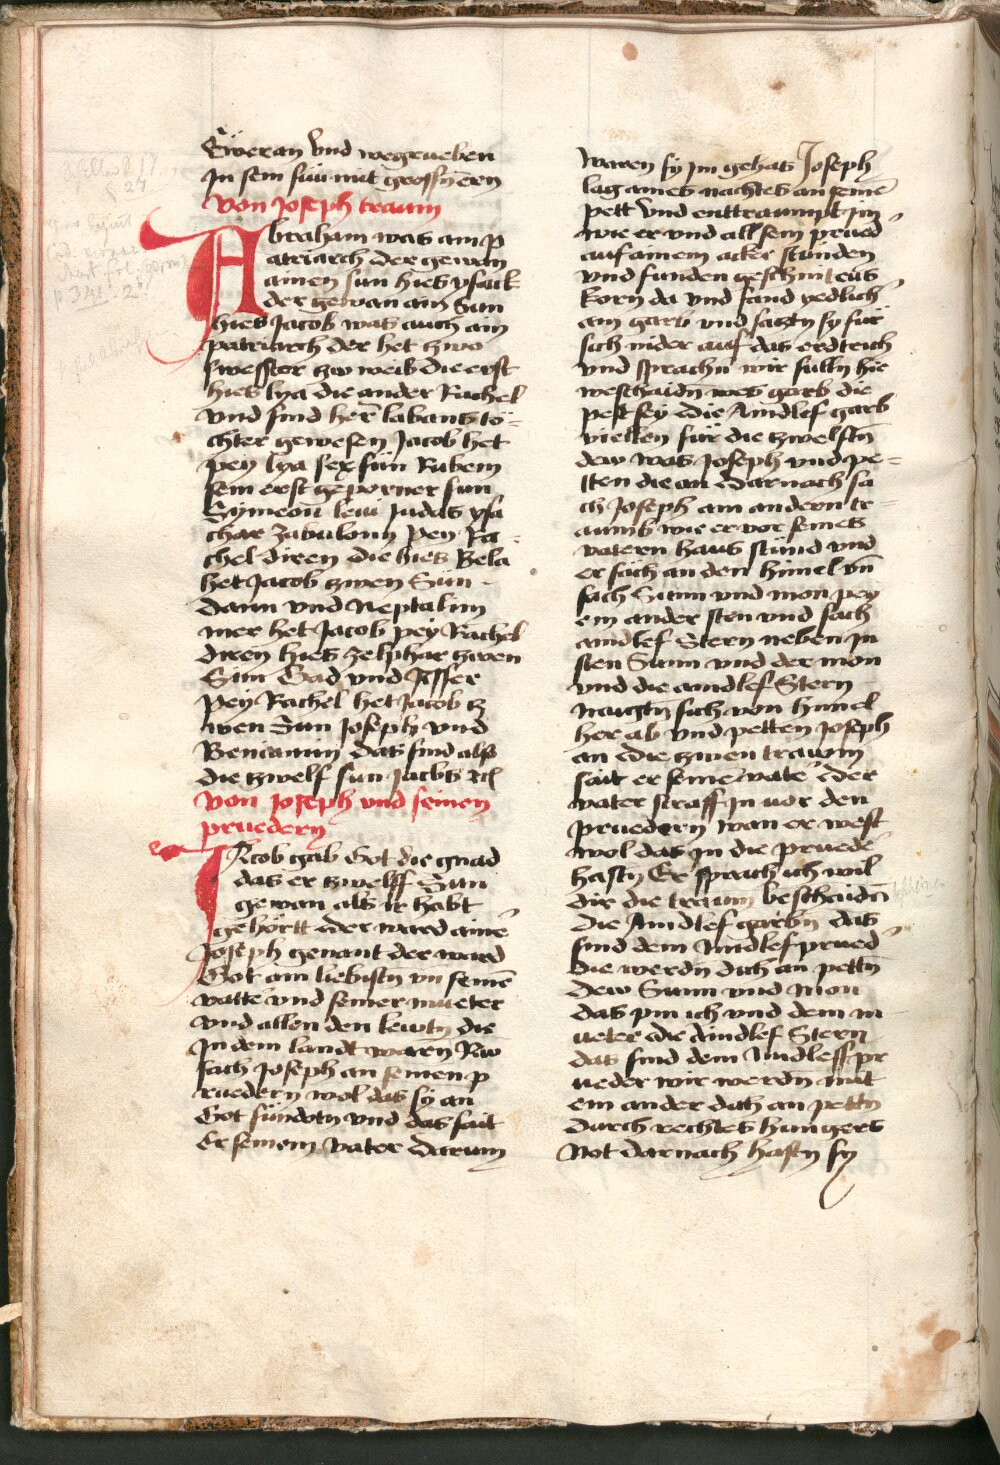 Eweran vnd wegrueben
In sein sun mit grossn ern
Von Joseph traum
Abraham was ain p
atriarch der gewan
ainen sun hies ysaak
der gewan ain Sun
hies Jacob was auch ain
patriarch der het zwo
swesster zw weib die erst
hies lya die ander Rachel
vnd sind her labans to-
chter gewesen Jacob het
pey lya sex sün Rubem
sein erst geporner sun
Symeon leui Judas ysa
char zabulonn pey Ra-
chel diren die hies Bela
het Jacob zwen Sün
Dann vnd Neptalim
mer het Jacob pey Rachel
diren hies zelphar zwen
Sün Gad vnd Asser
pey Rachel het Jacob z
wen Sun Joseph vnd
Beniamin das sind als
die zwelf sun Jacobs
Von Joseph vnd seinen
pruedern
Jacob gab Got die gnad
das er zwelff Sun
gewan als ir habt
gehörtt der ward aine
Joseph genant der ward
Got am liebistn vn seinē
vatte vnd seiner mueter
vnd allen den lewtn die
In dem landt warn Nw
sach Joseph an seinen p
ruedern wol das sy an
Got sündotn vnd das sait
Er seinem vater darum
waren sy Im gehas Joseph
lag aines nachtes an seinē
pett vnd enttraumpt im
wie er vnd all sein prued
auf ainem acker stunden
vnd funden geschniteus
korn da vnd fand yedlich
ain garb vnd saztn sy für
sich nider auf das erdreich
vnd sprachn wir sulln hie
weschaidn wes garb die
pest sey die Aindlef garb
vielten für die zwelftn
dew was Joseph vnd pe-
tten die an Darnach sa
ch Joseph ain andern tr
aumb wie er vor seines
vatern haus stund vnd
er sach an den himel vn
sach Sunn vnd mon pey
ein ander sten vnd sach
aindlef Stern neben in
sten Sunn vnd der mon
vnd die aindlef Stern
naigtn sich von himel
her ab vnd petten Joseph
an die zwen traum
sait er seinē vate der
vater straff in vor den
pruedern wan er west
wol das in die pruede
hastn Er sprach ich wil
dir die traum beschaidn
Die Aindlef garbn das
sind dein Aindlef prued
die werdn dich an pettn
Dew Sunn vnd Mon
das pin ich vnd dein m
ueter die Aindlef Stern
das sind dein Aindleff pr
ueder wir werdn mit
ein ander dich an pettn
durch rechtes hungers
Not darnach hastn sy